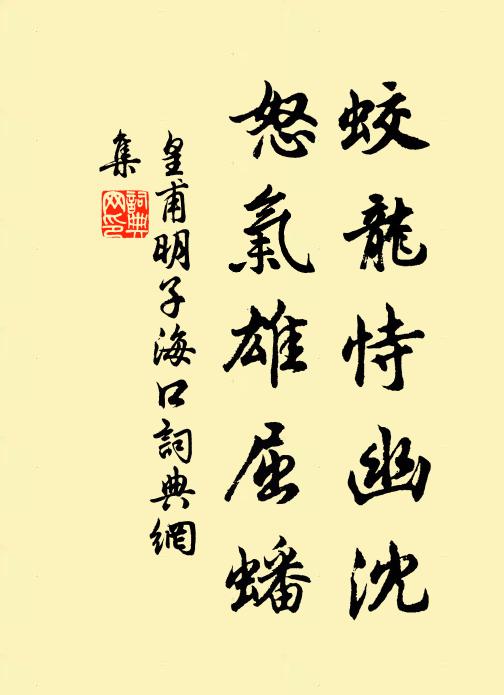 蛟龍恃幽沈
怒氣雄屈蟠
皇甫明子海口詞典網
集
詞典
网印